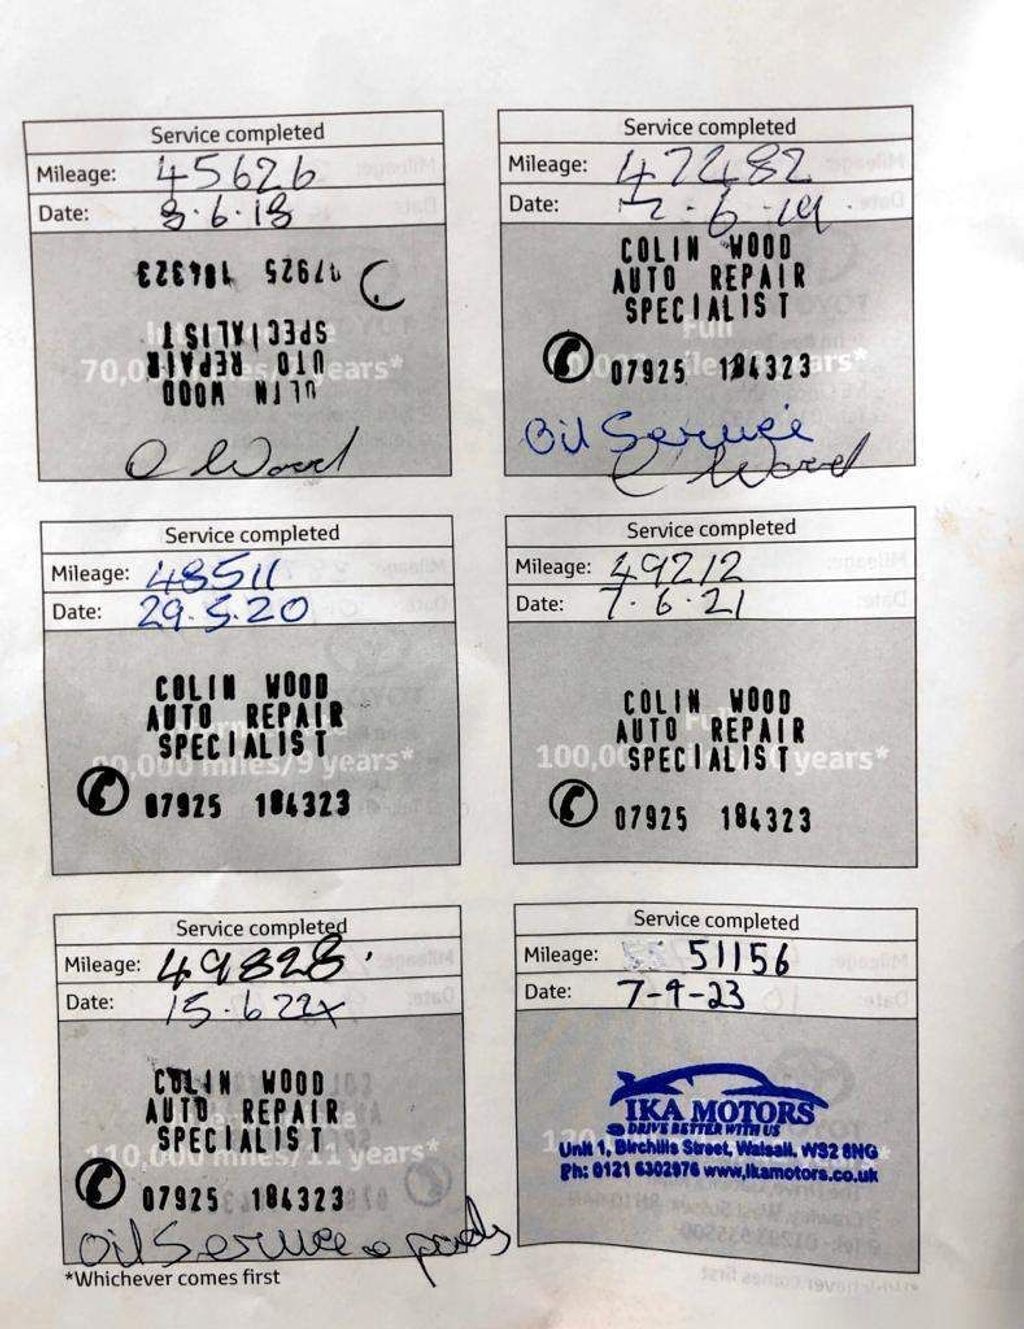 Service completed
Mileage: 45626
Date: 8.6.18
07925 184323
SPECIALIST
UTO REPAIR
WOOD
70,0 years*
C Wood
Service completed
Mileage: 47482
Date: 12.6.19
COLIN WOOD
AUTO REPAIR
SPECIALIST
Full
07925 184323
Oil Service
C Wood
Service completed
Mileage: 48511
Date: 29.5.20
COLIN WOOD
AUTO REPAIR
SPECIALIST
90,000 miles/9 years*
07925 184323
Service completed
Mileage: 49212
Date: 7.6.21
COLIN WOOD
AUTO REPAIR
SPECIALIST
100,00 years*
07925 184323
Service completed
Mileage: 49828
Date: 15.6 22
COLIN WOOD
AUTO REPAIR
SPECIALIST
110,000 miles/11 years*
07925 184323
Oil Service & pads
Service completed
Mileage: 51156
Date: 7-9-23
IKA MOTORS
DRIVE BETTER WITH US
Unit 1, Birchills Street, Walsall, WS2 8NG
Ph: 0121 6302976 www,ikamotors.co.uk
*Whichever comes first